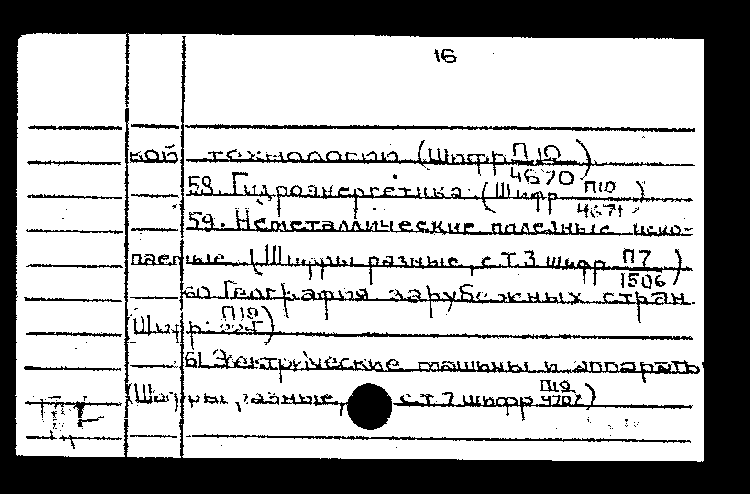 16
кой технологии (Шифр П10/4670)
58. Гидроэнергетика (Шифр П10/4671)
59. Неметаллические полезные иско-
паемые (Шифры разные, с Т.3 шифр П7/1506)
60 География зарубежных стран
(Шифр: П19
61 Электрические машины и аппараты
(Шифры разные, с Т.7 шифр П19